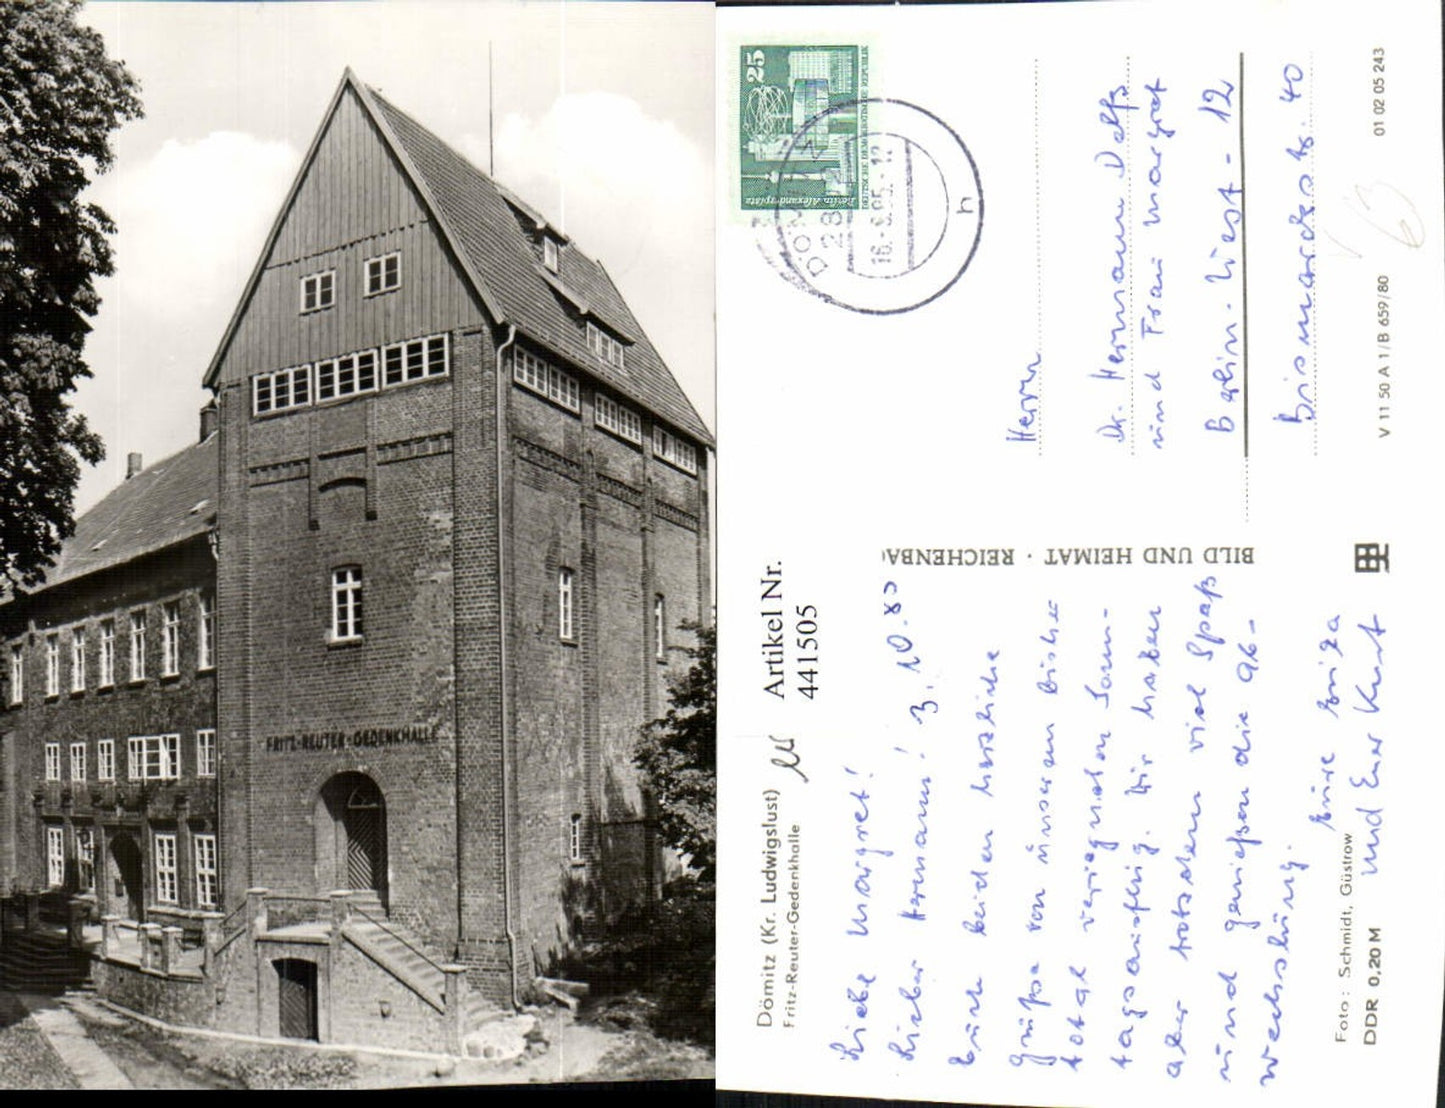 FRITZ-REUTER-GEDENKHALLE
Dömitz (Kr. Ludwigslust)
Fritz-Reuter-Gedenkhalle
Artikel Nr.
441505
Liebe Margret!
Lieber Hermann! 3.10.83
Euch beiden herzliche
Grüße von unserem bisher
total verregneten Sonn-
tagsausflug. Wir haben
aber trotzdem viel Spaß
und genießen die Ab-
wechslung.
Eure Erika
und Euer Kurt
Foto: Schmidt, Güstrow
DDR 0,20 M
BILD UND HEIMAT · REICHENBA
25
Berlin, Alexanderplatz
DEUTSCHE DEMOKRATISCHE REPUBLIK
DÖMITZ
h
Herrn
Dr. Hermann
und Frau Margret
Berlin-West-12
Bismarckstr. 40
V 11 50 A 1/B 659/80
01 02 05 243
63